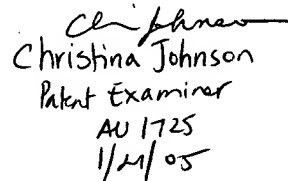 Johnson
Christina Johnson
Patent Examiner
AU 1725
1/21/05